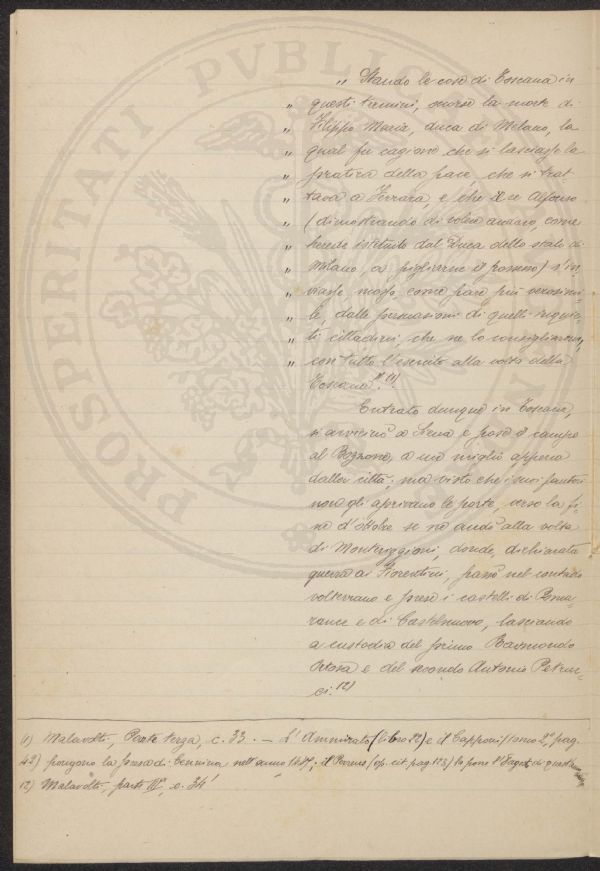 „ Stando le cose di Toscana in
„ questi termini, occorse la morte di
„ Filippo Maria, duca di Milano, la
„ qual fu cagione che si lasciasse la
„ pratica della pace, che si trat
„ tava a Ferrara, e che il re Alfonso
„ (dimostrando di voler andare, come
„ herede istituito dal Duca dello stato di
„ Milano, a pigliarne il possesso) s'in
„ viasse, mosso come pare più verosimi
„ le, dalle persuasioni di quelli inquie
„ ti cittadini, che ne lo consigliavano,
„ con tutto l'esercito alla volta della
Toscana". (1)
Entrato dunque in Toscana,
si avvicinò a Siena e pose il campo
al Bozzone, a un miglio appena
dalla città; ma visto che i suoi fautori
non gli aprivano le porte, verso la fi
ne d'ottobre se ne andò alla volta
di Monteriggioni, donde, dichiarata
guerra ai Fiorentini, passò nel contado
volterrano e prese i castelli di Poma
rance e di Castelnuovo, lasciando
a custodia del primo Raimondo
Ortosa e del secondo Antonio Petruc
ci. (2)
(1) Malavolti, Parte terza, c. 33. — L'Ammirato (libro 22) e il Capponi (tomo 2° pag.
42) pongono la presa di Cennina nell'anno 1447; il (op. cit. pag. 123) la pone di
(2) Malavolti, parte IIIª, c. 34
PROSPERITATI PVBLIC